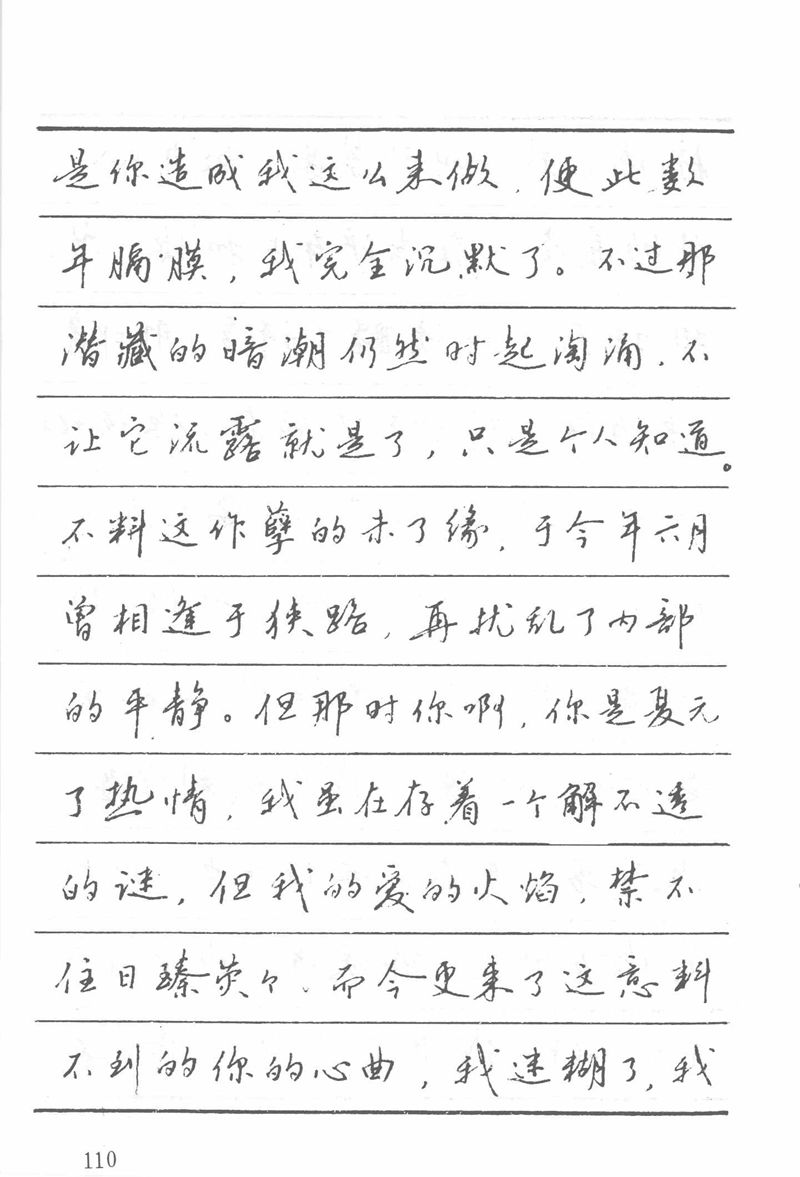 是你造成我这么来做，使此数
年膈膜，我完全沉默了。不过那
潜藏的暗潮仍然时起淘涌，不
让它流露就是了，只是个人知道。
不料这作孽的未了缘，于今年六月
曾相逢于狭路，再扰乱了内部
的平静。但那时你啊，你是复元
了热情，我虽在存着一个解不透
的谜，但我的爱的火焰，禁不
住日臻荧々、而今更来了这意料
不到的你的心曲，我迷糊了，我
110